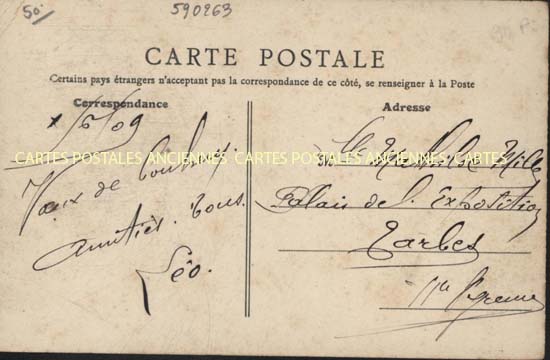 50-
590263
CARTE POSTALE
Certains pays étrangers n'acceptant pas la correspondance de ce côté, se renseigner à la Poste
Correspondance
Adresse
/5/09
CARTES POSTALES ANCIENNES CARTES POSTALES ANCIENNES CARTES POSTALES ANCIENNES
de
Amitiés. Tous.
Léo.
Mlle
Palais de l'Exposition
Tarbes